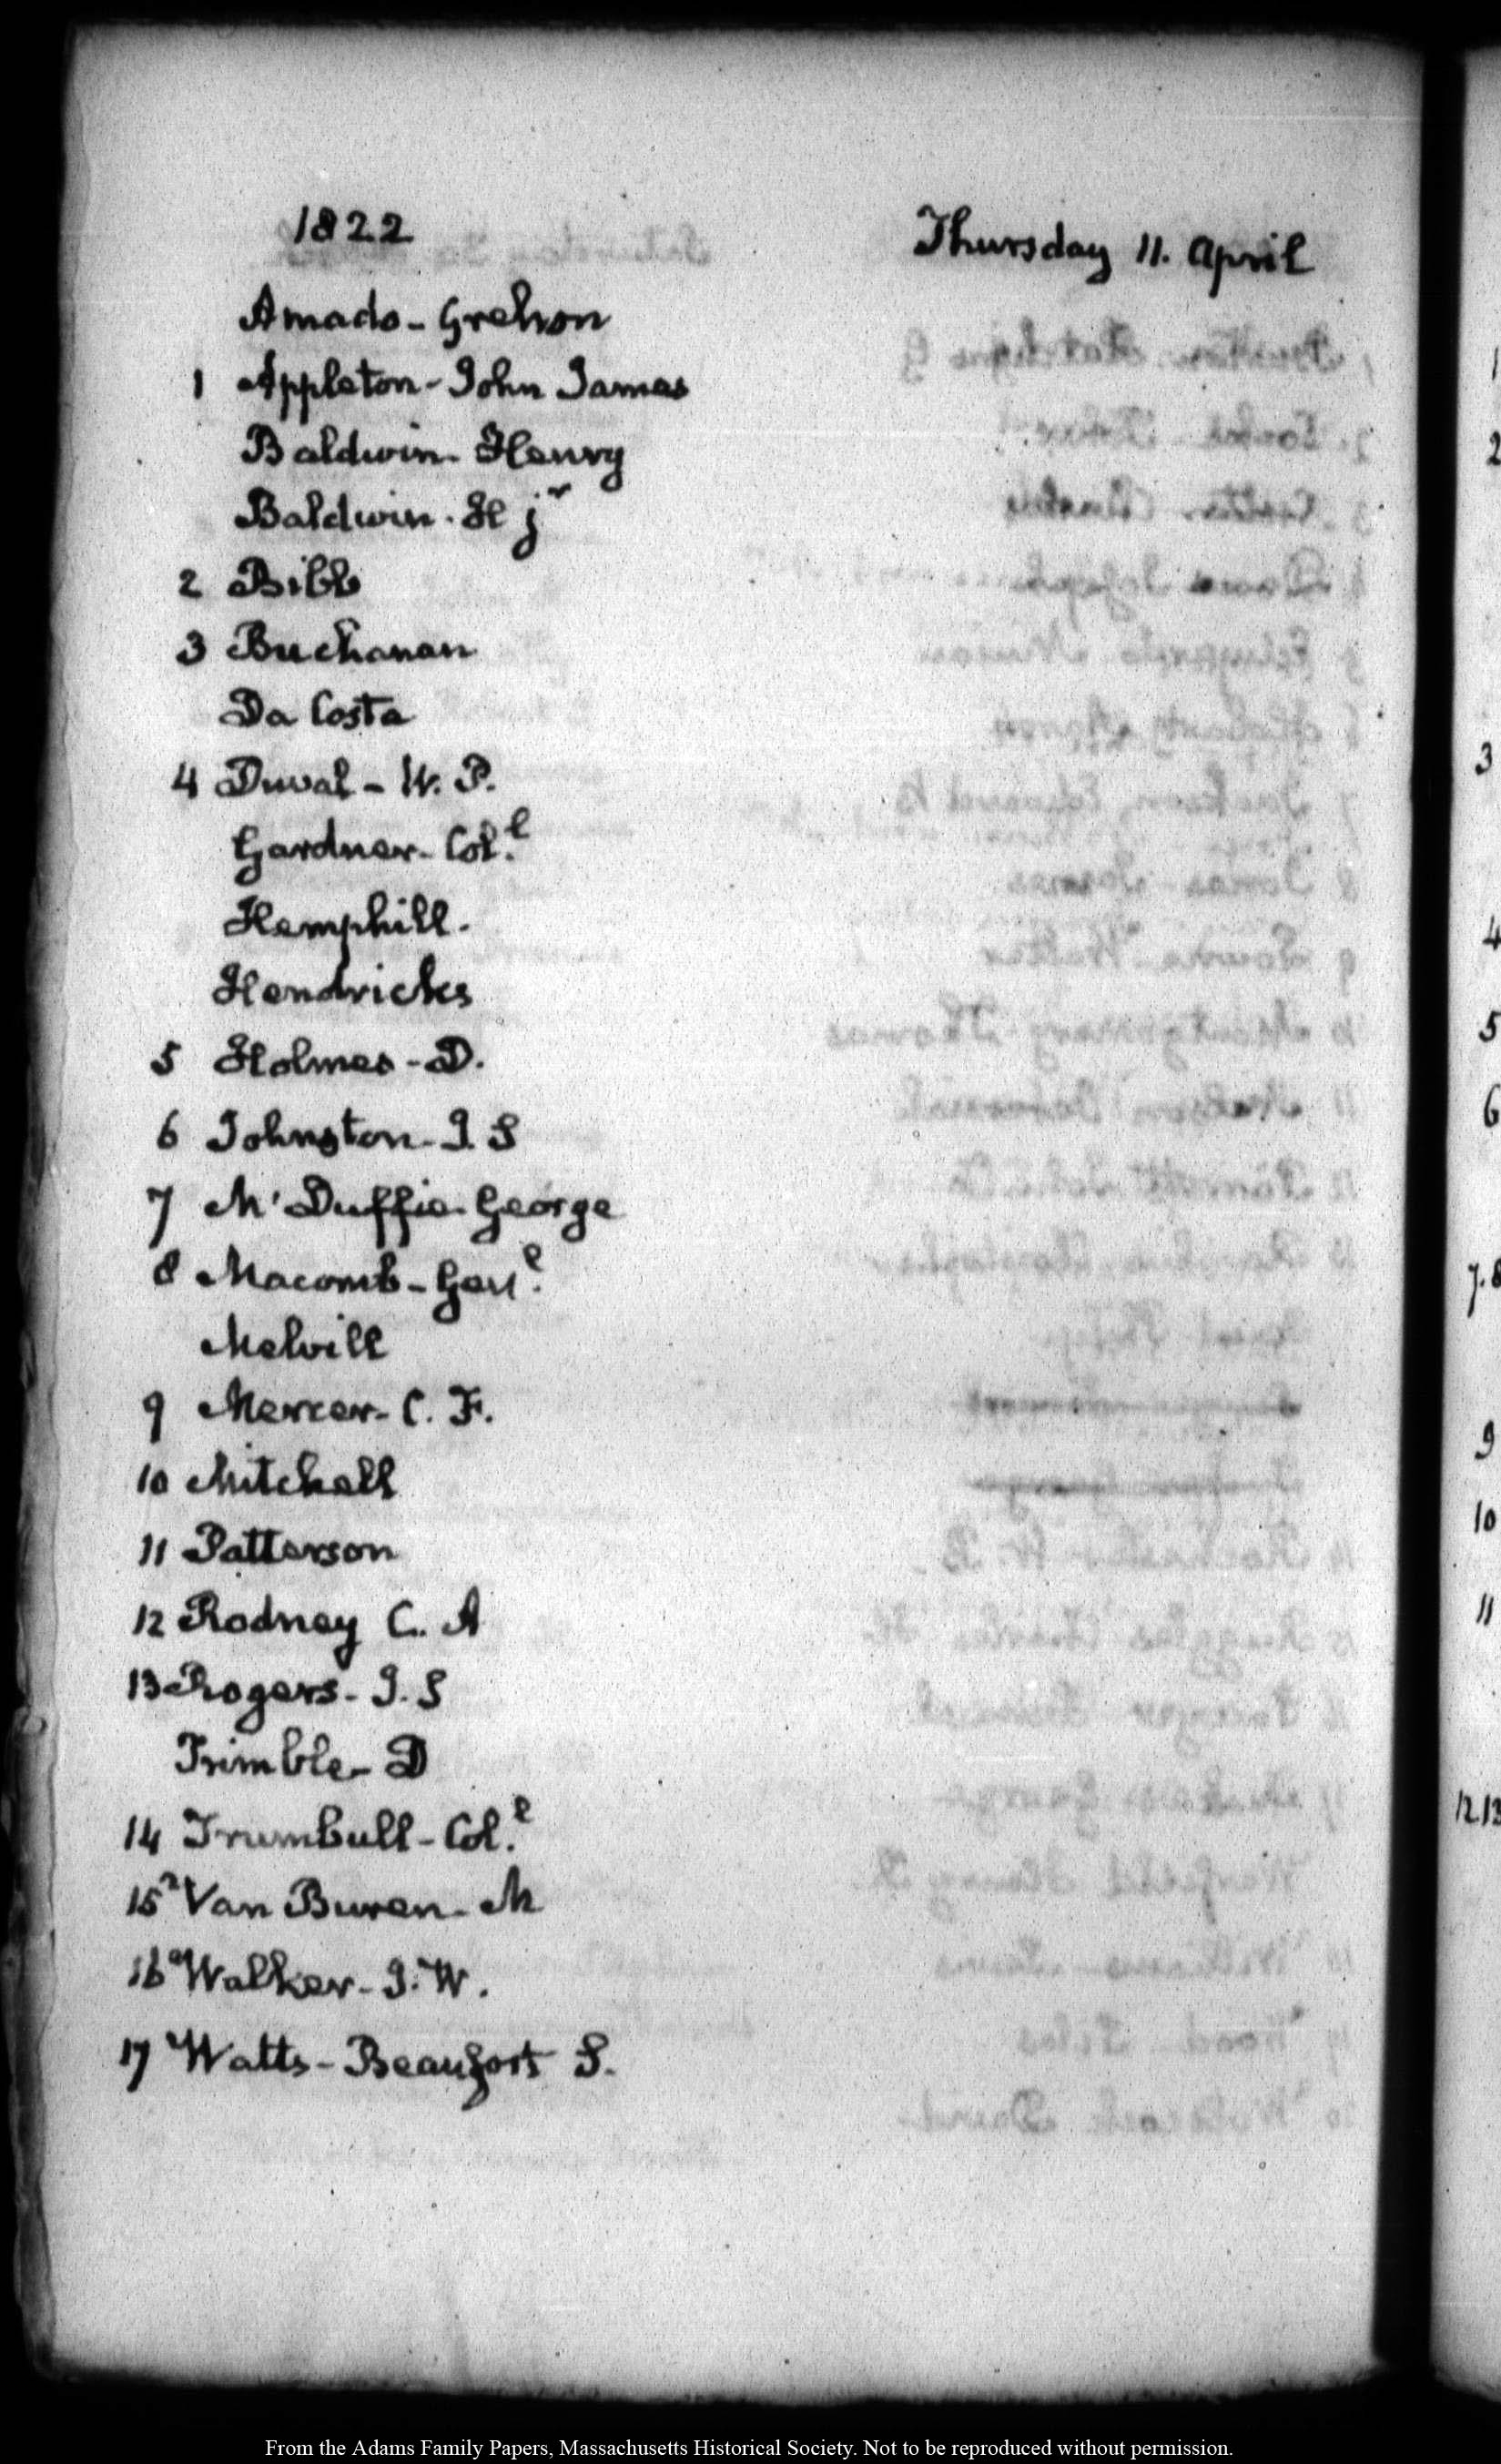 1822 Thursday 11. April
Amado - Grehon
1 Appleton - John James
Baldwin - Henry
Baldwin - H jr
2 Bibb
3 Buchanan
Da Costa
4 Duval - W. P.
Gardner - Col.l
Hemphill.
Hendricks
5 Holmes - D.
6 Johnston - J. S
7 M'Duffie - George
8 Macomb - Gen.l
Melvill
9 Mercer - C. F.
10 Mitchell
11 Patterson
12 Rodney C. A
13 Rogers - J. S
Trimble - D
14 Trumbull - Col.l
15 Van Buren - M
16 Walker - J. W.
17 Watts - Beaufort S.
1
2
3
4
5
6
7.8
9
10
11
12.13
From the Adams Family Papers, Massachusetts Historical Society. Not to be reproduced without permission.